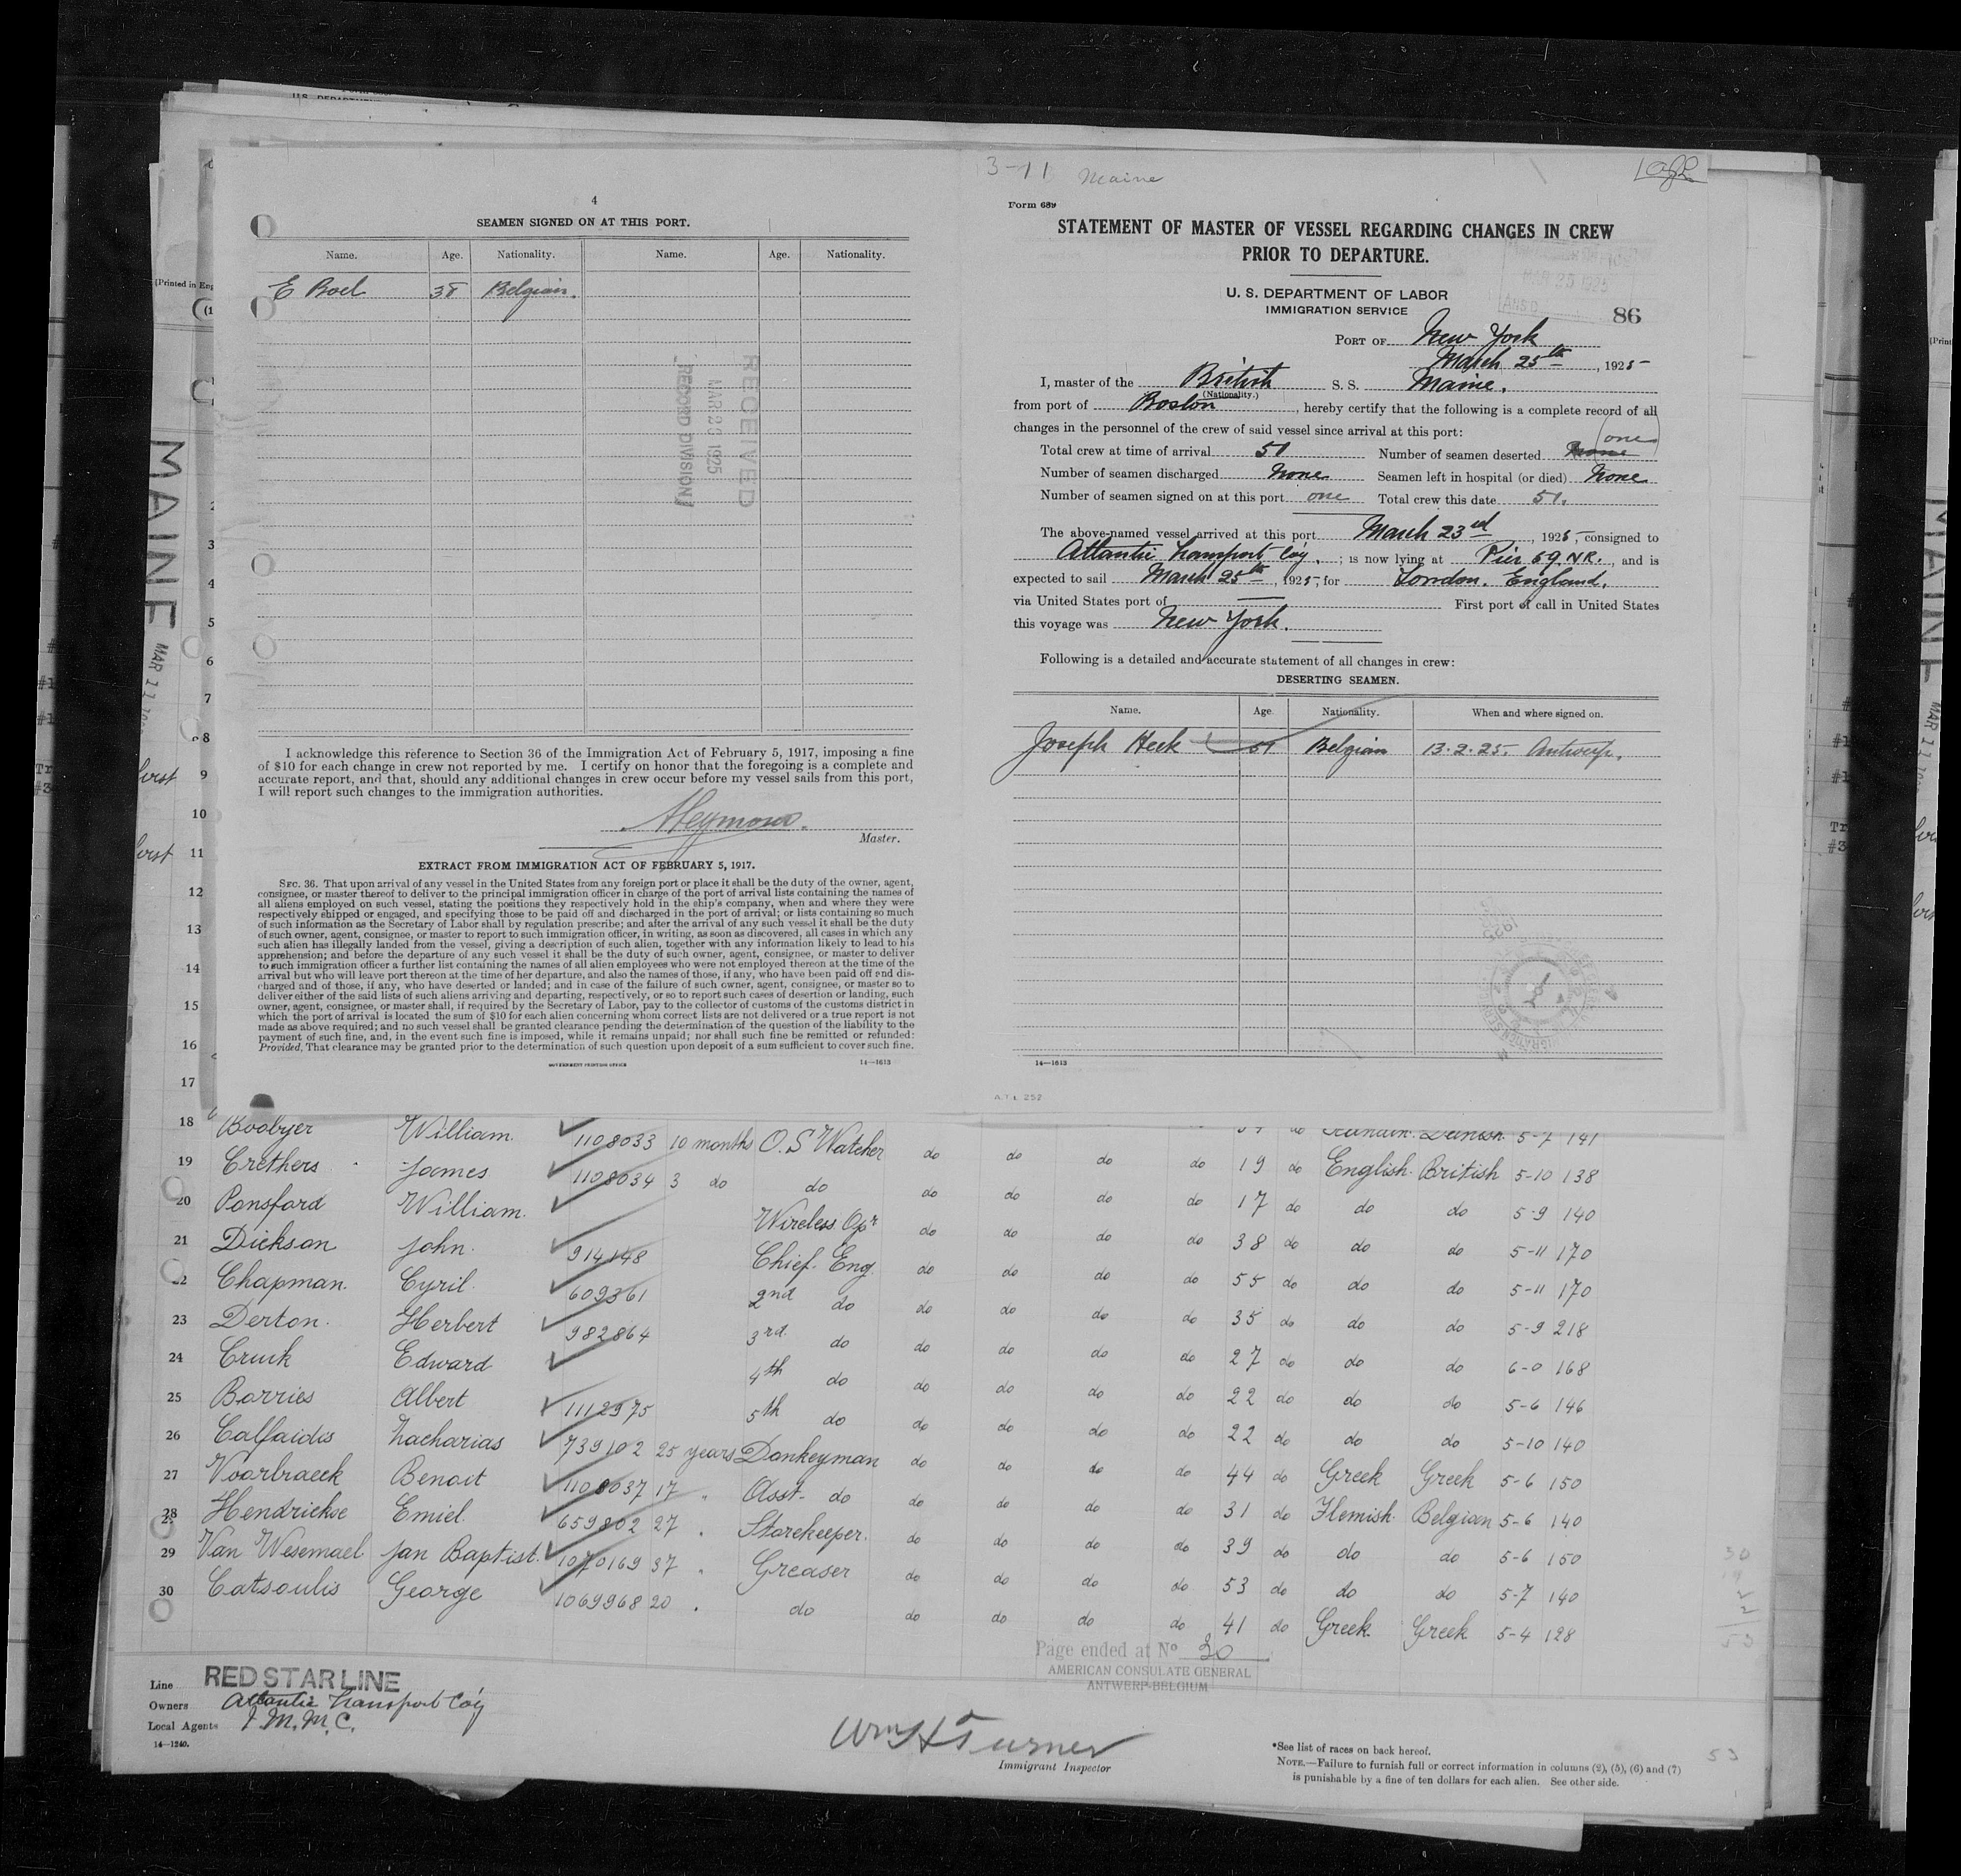 U. S. DEPARTMENT
4
SEAMEN SIGNED ON AT THIS PORT.
Name. Age. Nationality. Name. Age. Nationality.
E Boel 38 Belgian.
RECEIVED
MAR 23 1925
RECORD DIVISION
I acknowledge this reference to Section 36 of the Immigration Act of February 5, 1917, imposing a fine
of $10 for each change in crew not reported by me. I certify on honor that the foregoing is a complete and
accurate report, and that, should any additional changes in crew occur before my vessel sails from this port,
I will report such changes to the immigration authorities.
Master.
EXTRACT FROM IMMIGRATION ACT OF FEBRUARY 5, 1917.
SEC. 36. That upon arrival of any vessel in the United States from any foreign port or place it shall be the duty of the owner, agent,
consignee, or master thereof to deliver to the principal immigration officer in charge of the port of arrival lists containing the names of
all aliens employed on such vessel, stating the positions they respectively hold in the ship's company, when and where they were
respectively shipped or engaged, and specifying those to be paid off and discharged in the port of arrival; or lists containing so much
of such information as the Secretary of Labor shall by regulation prescribe; and after the arrival of any such vessel it shall be the duty
of such owner, agent, consignee, or master to report to such immigration officer, in writing, as soon as discovered, all cases in which any
such alien has illegally landed from the vessel, giving a description of such alien, together with any information likely to lead to his
apprehension; and before the departure of any such vessel it shall be the duty of such owner, agent, consignee, or master to deliver
to such immigration officer a further list containing the names of all alien employees who were not employed thereon at the time of the
arrival but who will leave port thereon at the time of her departure, and also the names of those, if any, who have been paid off and dis-
charged and of those, if any, who have deserted or landed; and in case of the failure of such owner, agent, consignee, or master so to
deliver either of the said lists of such aliens arriving and departing, respectively, or so to report such cases of desertion or landing, such
owner, agent, consignee, or master shall, if required by the Secretary of Labor, pay to the collector of customs of the customs district in
which the port of arrival is located the sum of $10 for each alien concerning whom correct lists are not delivered or a true report is not
made as above required; and no such vessel shall be granted clearance pending the determination of the question of the liability to the
payment of such fine, and, in the event such fine is imposed, while it remains unpaid; nor shall such fine be remitted or refunded:
Provided, That clearance may be granted prior to the determination of such question upon deposit of a sum sufficient to cover such fine.
GOVERNMENT PRINTING OFFICE 14—1613
3-11 Maine
Form 689
STATEMENT OF MASTER OF VESSEL REGARDING CHANGES IN CREW
PRIOR TO DEPARTURE.
U. S. DEPARTMENT OF LABOR
IMMIGRATION SERVICE
MAR 25 1925
86
PORT OF New York
March 25th, 1925
I, master of the British S. S. Maine.
(Nationality.)
from port of Boston, hereby certify that the following is a complete record of all
changes in the personnel of the crew of said vessel since arrival at this port:
one
Total crew at time of arrival 51 Number of seamen deserted none
Number of seamen discharged None Seamen left in hospital (or died) None
Number of seamen signed on at this port one Total crew this date 51.
The above-named vessel arrived at this port March 23rd, 1925, consigned to
Atlantic Transport Coy.; is now lying at Pier 69. N.R., and is
expected to sail March 25th, 1925, for London. England.
via United States port of — First port of call in United States
this voyage was New York.
Following is a detailed and accurate statement of all changes in crew:
DESERTING SEAMEN.
Name. Age. Nationality. When and where signed on.
Joseph Heck 51 Belgian 13.2.25. Antwerp.
14—1613
A.T.L. 252
MAINE
MAR 11
3
4
5
6
7
8
9
10
11
12
13
14
15
16
17
18 Boobyer William. 1108033 10 months O.S Watcher do do do do 19 do English British 5-10 138
19 Crethers James 1108034 3 do do do do do do 17 do do do 5-9 140
20 Ponsford William. Wireless Opr do do do do 38 do do do 5-11 170
21 Dickson John. 914148 Chief Eng. do do do do 55 do do do 5-11 170
22 Chapman. Cyril. 609361 2nd do do do do do 35 do do do 5-9 218
23 Derton. Herbert 982864 3rd do do do do do 27 do do do 6-0 168
24 Cruik Edward 4th do do do do do 22 do do do 5-6 146
25 Borries Albert 1112975 5th do do do do do 22 do do do 5-10 140
26 Calfaidis Zacharias 739102 25 years Donkeyman do do do do 44 do Greek Greek 5-6 150
27 Voorbraeck Benoit 1108037 17 " Asst. do do do do do 31 do Flemish Belgian 5-6 140
28 Hendrickse Emiel. 659802 27 " Storekeeper. do do do do 39 do do do 5-6 150
29 Van Wesemael Jan Baptist. 1070169 37 " Greaser do do do do 53 do do do 5-7 140
30 Catsoulis George 1069968 20 " do do do do do 41 do Greek Greek 5-4 128
Page ended at No 30
AMERICAN CONSULATE GENERAL
ANTWERP-BELGIUM
Line RED STAR LINE
Owners Atlantic Transport Coy
Local Agents I.M.M.C.
14—1240.
Wm H Turner
Immigrant Inspector
*See list of races on back hereof.
NOTE.—Failure to furnish full or correct information in columns (2), (5), (6) and (7)
is punishable by a fine of ten dollars for each alien. See other side.
53